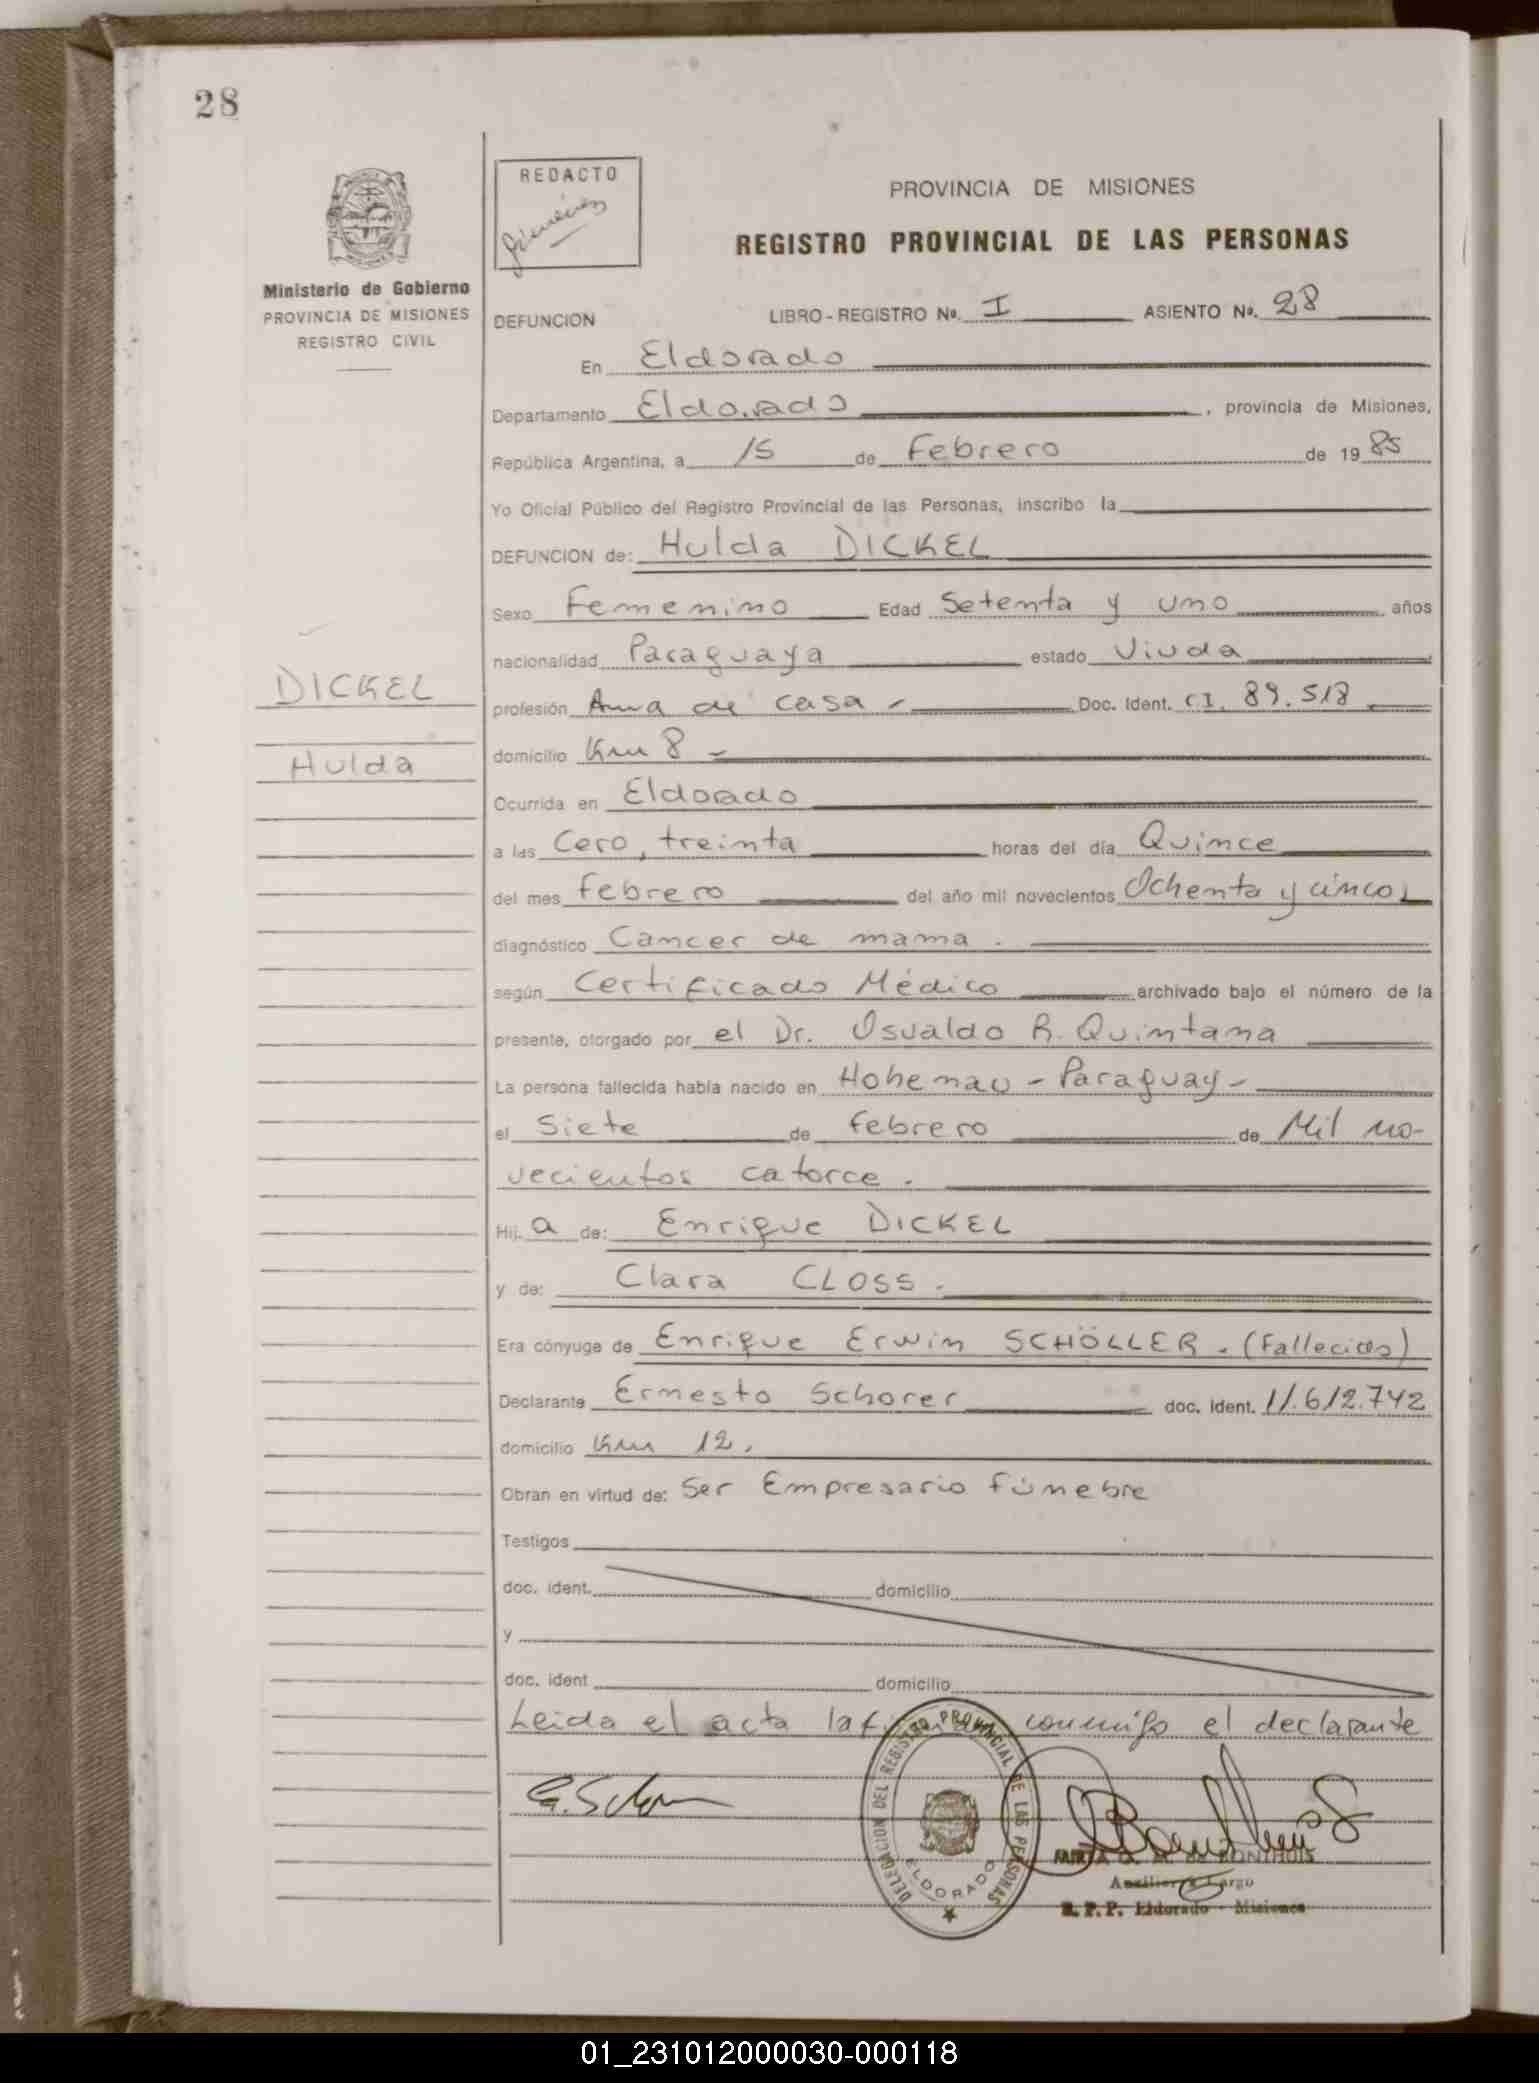 28
REDACTO
PROVINCIA DE MISIONES
REGISTRO PROVINCIAL DE LAS PERSONAS
Ministerio de Gobierno
PROVINCIA DE MISIONES
REGISTRO CIVIL
DEFUNCION LIBRO - REGISTRO Nº. I ASIENTO Nº. 28
En Eldorado
Departamento Eldorado, provincia de Misiones,
República Argentina, a 15 de Febrero de 1985
Yo Oficial Público del Registro Provincial de las Personas, inscribo la
DEFUNCION de: Hulda DICKEL
Sexo Femenino Edad Setenta y uno años
nacionalidad Paraguaya estado Viuda
DICKEL
profesión Ama de casa - Doc. Ident. C.I. 89.518
domicilio Km 8 -
Hulda
Ocurrida en Eldorado
a las Cero, treinta horas del día Quince
del mes febrero del año mil novecientos Ochenta y cinco
diagnóstico Cancer de mama.
según Certificado Médico archivado bajo el número de la
presente, otorgado por el Dr. Osvaldo R. Quintana
La persona fallecida había nacido en Hohenau - Paraguay -
el Siete de febrero de Mil no-
vecientos catorce.
Hij a de: Enrique DICKEL
y de: Clara CLOSS.
Era cónyuge de Enrique Erwin SCHÖLLER. (Fallecido)
Declarante Ernesto Schorer doc. ident. 11.612.742
domicilio Km 12.
Obran en virtud de: Ser Empresario fúnebre
Testigos
doc. ident. domicilio
y
doc. ident domicilio
Leida el acta la conmigo el declarante
DELEGACION DEL REGISTRO PROVINCIAL DE LAS PERSONAS
ELDORADO
de BONTHUIS
Auxiliar a Cargo
R. P. P. Eldorado - Misiones
01_231012000030-000118